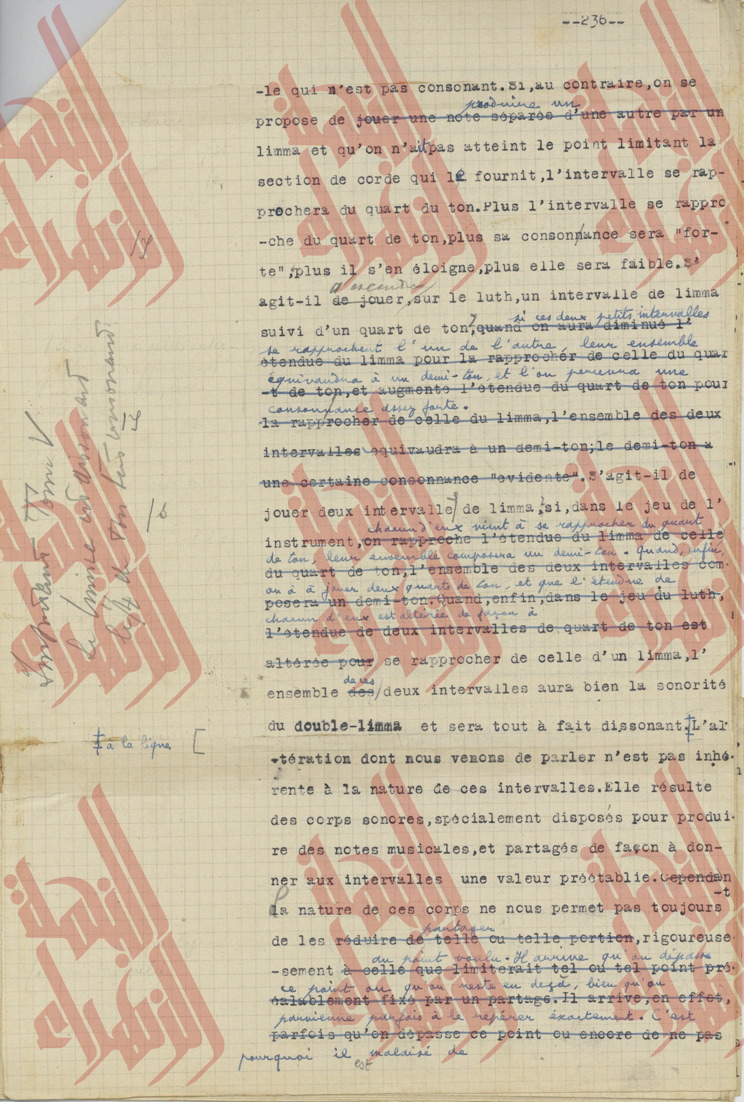 --236--
-le qui n'est pas consonant.Si,au contraire,on se
produire un
propose de jouer une note séparée d'une autre par un
limma et qu'on n'ait pas atteint le point limitant la
section de corde qui le fournit,l'intervalle se rap-
prochera du quart du ton.Plus l'intervalle se rappro
-che du quart de ton,plus sa consonnance sera "for-
te",plus il s'en éloigne,plus elle sera faible.S'
agit-il de jouer,sur le luth,un intervalle de limma
si ces deux petits intervalles
suivi d'un quart de ton,quand on aura diminué l'
se rapprochent l'un de l'autre, leur ensemble
étendue du limma pour la rapprocher de celle du quar
équivaudra à un demi-ton, et l'on percevra une
-t de ton,et augmenté l'étendue du quart de ton pour
consonnance assez forte.
la rapprocher de celle du limma,l'ensemble des deux
intervalles équivaudra à un demi-ton;le demi-ton a
une certaine consonnance "évidente".S'agit-il de
jouer deux intervalles de limma,si,dans le jeu de l'
chacun d'eux vient à se rapprocher du quart
instrument,on rapproche l'étendue du limma de celle
de ton, leur ensemble composera un demi-ton. Quand, enfin,
du quart de ton,l'ensemble des deux intervalles com-
on a à jouer deux quarts de ton, et que l'étendue de
posera un demi-ton.Quand,enfin,dans le jeu du luth,
chacun d'eux est altérée de façon à
l'étendue de deux intervalles de quart de ton est
altérée pour se rapprocher de celle d'un limma,l'
de ces
ensemble des deux intervalles aura bien la sonorité
du double-limma et sera tout à fait dissonant.L'al-
‡ à la ligne [
-tération dont nous venons de parler n'est pas inhé-
rente à la nature de ces intervalles.Elle résulte
des corps sonores,spécialement disposés pour produi-
re des notes musicales,et partagés de façon à don-
ner aux intervalles une valeur préétablie.Cependan
-t
la nature de ces corps ne nous permet pas toujours
partager
de les réduire de telle ou telle portion,rigoureuse
du point voulu. Il arrive qu'on dépasse
-sement à celle que limiterait tel ou tel point pré-
ce point ou qu'on reste en deçà, bien qu'on
éalablement fixé par un partage.Il arrive,en effet,
parvienne parfois à le repérer exactement. C'est
parfois qu'on dépasse ce point ou encore de ne pas
pourquoi il est malaisé de
Important